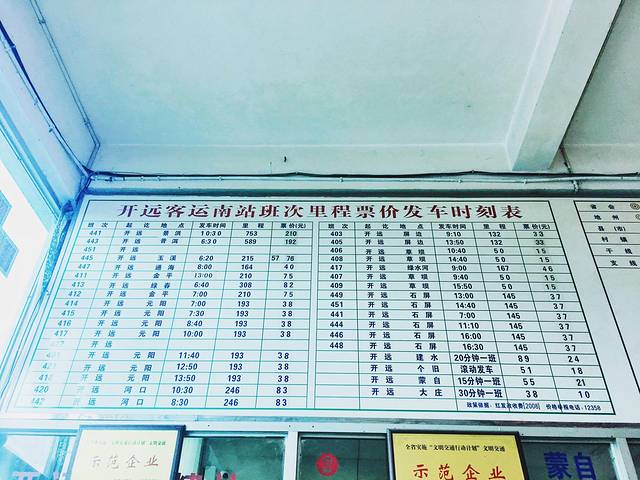 开远客运南站班次里程票价发车时刻表
班次 起讫地点 发车时间 里程 票价(元)
441 开远 景洪 10:30 753 210
443 开远 普洱 6:30 589 192
451 开远
445 开远 玉溪 6:20 215 57 76
447 开远 通海 8:00 164 40
411 开远 金平 13:00 210 75
413 开远 绿春 6:40 308 82
412 开远 金平 7:00 210 75
414 开远 元阳 7:00 193 38
415 开远 元阳 7:30 193 38
416 开远 元阳 8:40 193 38
417 开远 元阳 10:00 193 38
开远
开远 元阳 11:40 193 38
开远 元阳 12:50 193 38
开远 元阳 13:50 193 38
420 开远 河口 10:30 246 83
开远 河口 8:30 246 83
班次 起讫地点 发车时间 里程 票价(元)
403 开远 屏边 9:10 132 33
405 开远 屏边 13:50 132 33
406 开远 草坝 10:40 50 15
408 开远 草坝 14:40 50 15
417 开远 绿水河 9:00 167 46
407 开远 草坝 9:40 50 15
409 开远 草坝 15:50 50 15
449 开远 石屏 13:00 145 37
451 开远 石屏 14:40 145 37
441 开远 石屏 7:00 145 37
444 开远 石屏 11:10 145 37
446 开远 石屏 16:00 145 37
448 开远 石屏 16:30 145 37
开远 建水 20分钟一班 89 24
开远 个旧 滚动发车 51 18
开远 蒙自 15分钟一班 55 21
开远 大庄 30分钟一班 38 10
价格举报电话:12358
省会
地州
县(市)
村镇
干线
支线
示范企业
全省实施"文明交通行动计划"文明交通
示范企业
蒙自